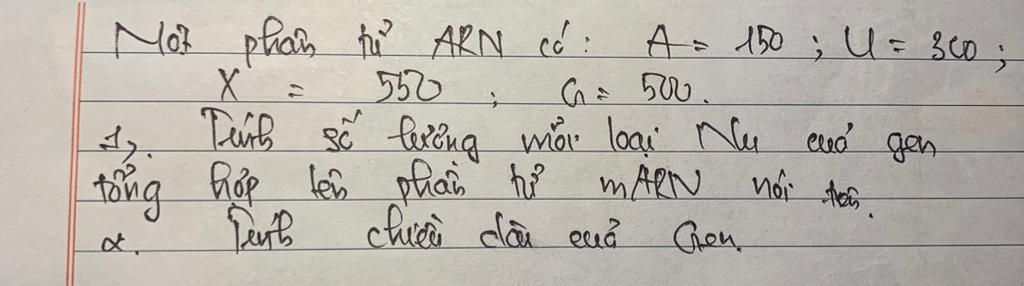 Một phân tử ARN có: A = 150; U = 300;
X = 550; G = 500.
1,. Tính số lượng mỗi loại Nu của gen
tổng hợp lên phân tử mARN nói trên.
2. Tính chiều dài của Gen.